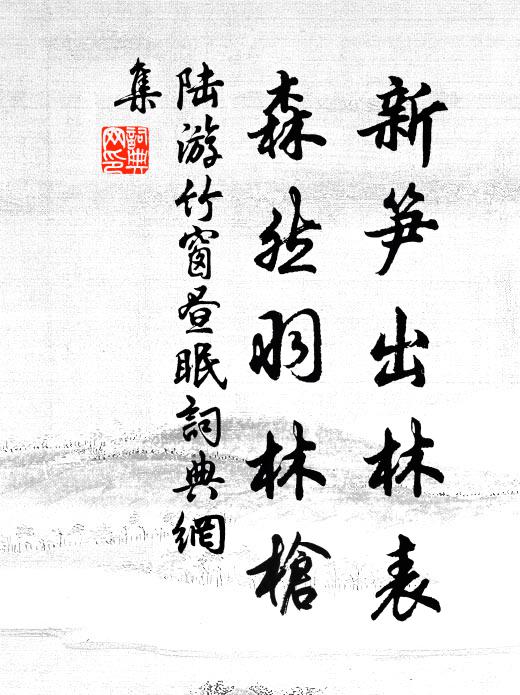 新笋出林表
森然羽林槍
陆游竹窗昼眠詞典網
集
詞典网印